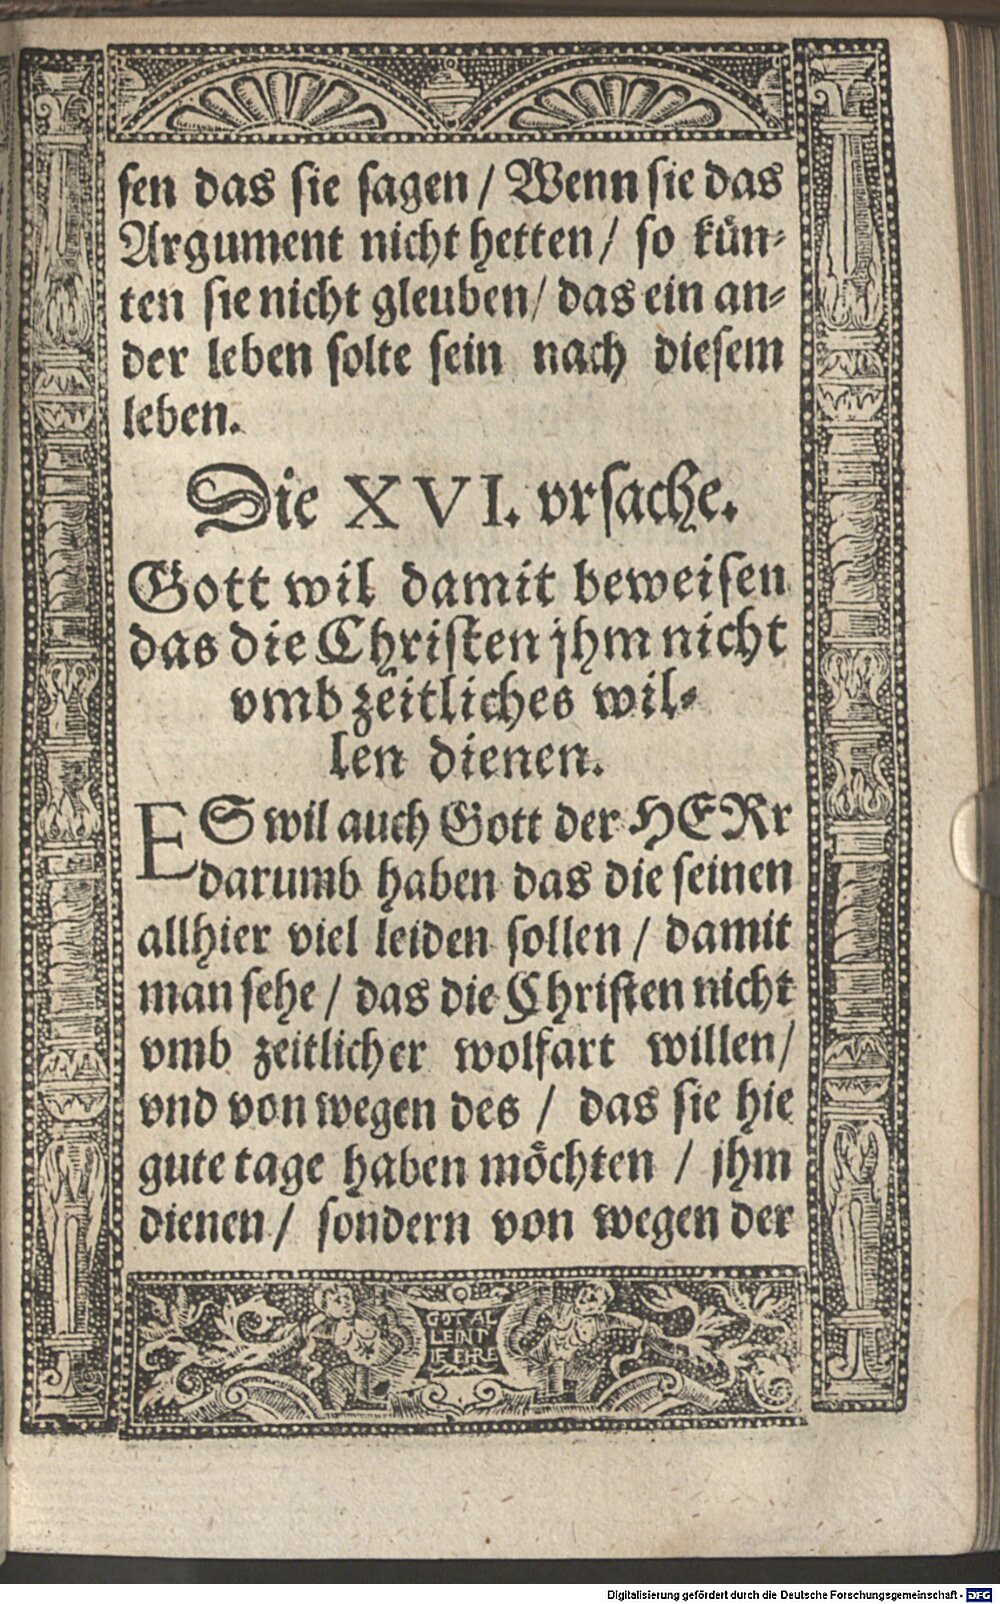 sen das sie sagen / Wenn sie das
Argument nicht hetten / so kün⸗
ten sie nicht gleuben / das ein an⸗
der leben solte sein nach diesem
leben.
Die XVI. vrsache.
Gott wil damit beweisen
das die Christen jhm nicht
vmb zeitliches wil⸗
len dienen.
ES wil auch Gott der HERr
darumb haben das die seinen
allhier viel leiden sollen / damit
man sehe / das die Christen nicht
vmb zeitlicher wolfart willen /
vnd von wegen des / das sie hie
gute tage haben möchten / jhm
dienen / sondern von wegen der
GOT AL
LEIN D
IE EHRE
Digitalisierung gefördert durch die Deutsche Forschungsgemeinschaft - DFG